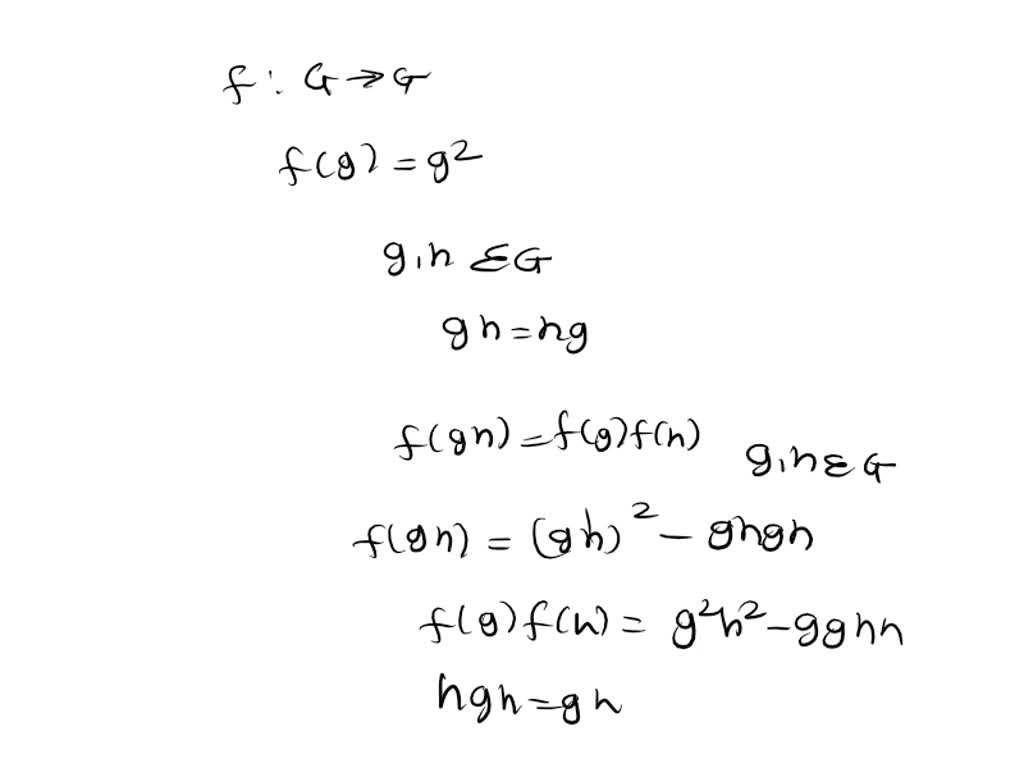 f : G → G
f(g) = g²
g, h ∈ G
gh = hg
f(gh) = f(g)f(h) g, h ∈ G
f(gh) = (gh)² - ghgh
f(g)f(h) = g²h² - gghh
hgh = gh